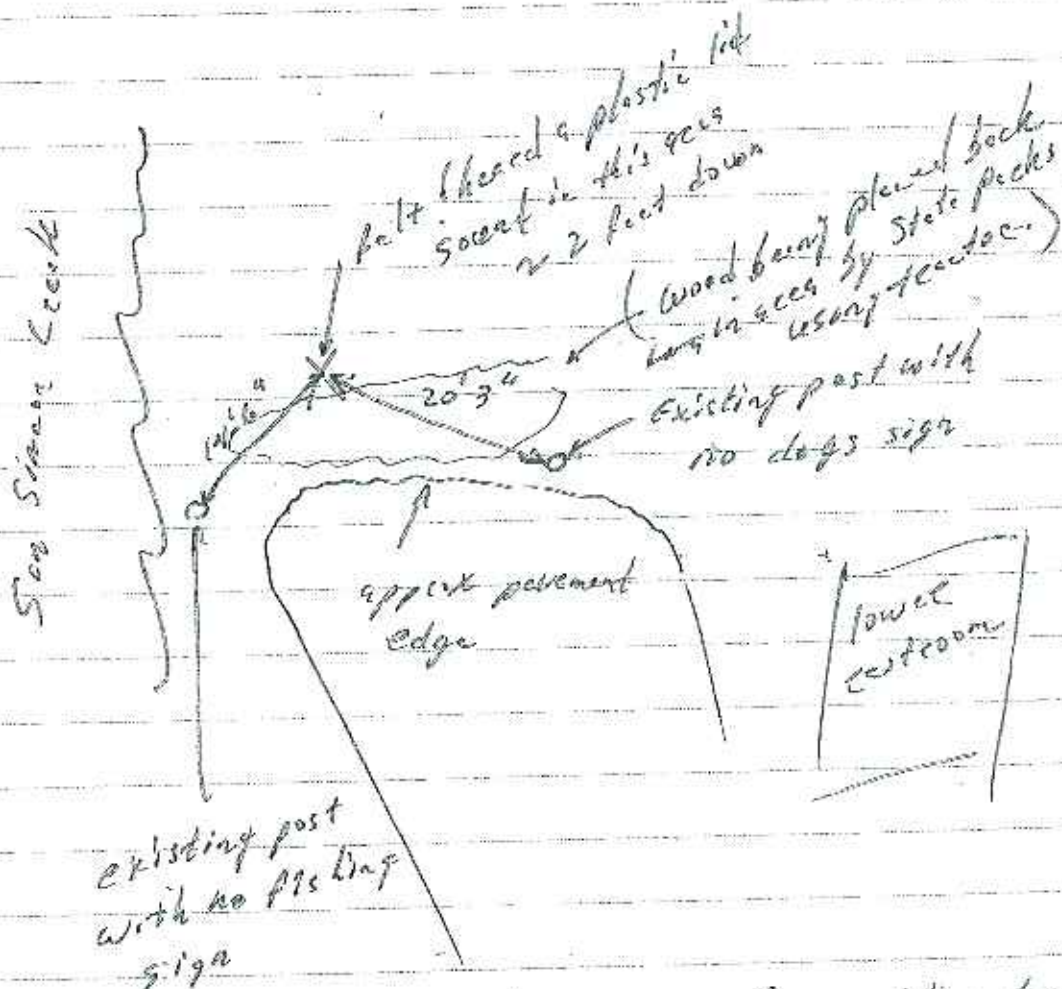 felt / heard a plastic lid
sound in this area
~ 2 feet down
(wood being placed back
in area by State Parks
using tractor.)
San Simeon Creek
20'3"
Existing post with
no dogs sign
approx pavement
edge
lower
restroom
existing post
with no fishing
sign